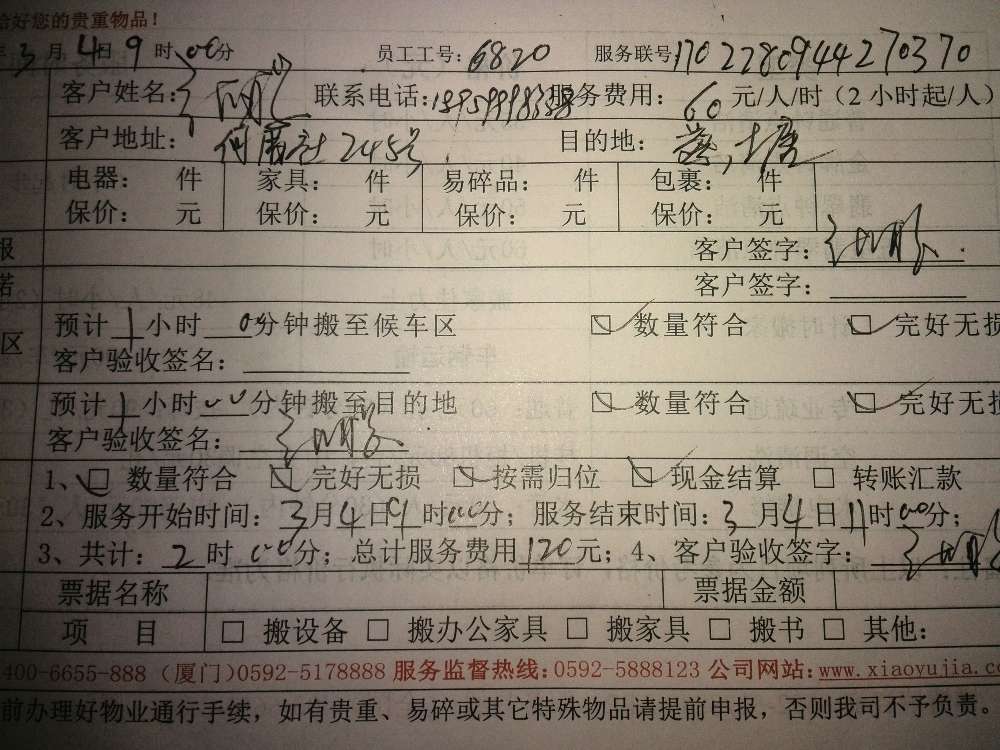 给好您的贵重物品!
年3月4日9时00分 员工工号:6820 服务联号:1702280944270370
客户姓名: 联系电话: 服务费用:60元/人/时(2小时起/人)
客户地址: 何厝社245号 目的地:
电器: 件 家具: 件 易碎品: 件 包裹: 件
保价: 元 保价: 元 保价: 元 保价: 元
报 客户签字:
诺 客户签字:
区 预计1小时00分钟搬至候车区 ☑数量符合 ☑完好无损
客户验收签名:
预计1小时00分钟搬至目的地 ☑数量符合 ☑完好无损
客户验收签名:
1、☑数量符合 ☑完好无损 ☑按需归位 ☑现金结算 □转账汇款
2、服务开始时间:3月4日9时00分;服务结束时间:3月4日11时00分;
3、共计:2时00分;总计服务费用120元;4、客户验收签字:
票据名称 票据金额
项 目 □ 搬设备 □ 搬办公家具 □ 搬家具 □ 搬书 □ 其他:
400-6655-888 (厦门)0592-5178888 服务监督热线:0592-5888123 公司网站:www.xiaoyujia.c
前办理好物业通行手续,如有贵重、易碎或其它特殊物品请提前申报,否则我司不予负责。